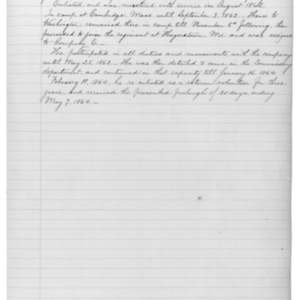 Enlisted and was mustered into service in August 1862.
In camp at Cambridge Mass until September 3, 1862. Thence to
Washington, remained there in camp till November 6th following, then
proceeded to join the regiment at Hagerstown Md and was assigned
to Company C.
He participated in all duties and movements with the company
until May 25, 1863. He was then detailed to serve in the Commissary
department and continued in that capacity till January 16, 1864.
February 11, 1864, he re enlisted as a veteran volunteer for three
years and received the furlough of 30 days ending
May 7, 1864.